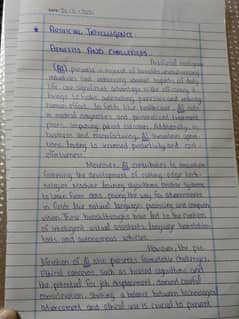 Artificial Intelligence:
Benefits And Challenges.
Artificial intelligence
(AI) presents a myriad of benefits, revolutionizing
industries and enhancing various facets of daily
life. One significant advantage is the efficiency it
brings to tasks, automating processes and reducing
human effort. In fields like healthcare, AI aids
in medical diagnostics and personalized treatment
plans, improving patient outcomes. Additionally, in
business and manufacturing, AI streamlines opera-
tions, leading to increased productivity and cost
effectiveness.
Moreover, AI contributes to innovation
fostering the development of cutting-edge tech-
nologies. Machine learning algorithms enable systems
to learn from data, paving the way for advancements
in fields like natural language processing and computer
vision. These breakthroughs have led to the creation
of intelligent virtual assistants, language translation
tools, and autonomous vehicles.
However, the pro-
liferation of AI also presents formidable challenges.
Ethical concerns, such as biased algorithms and
the potential for job displacement, demand careful
consideration. Striking a balance between technological
advancement and ethical use is crucial to prevent